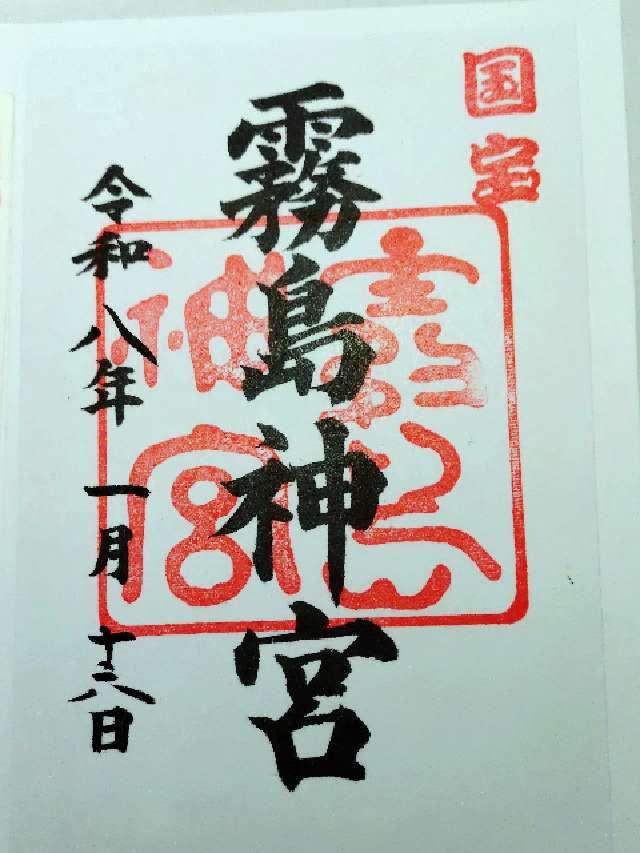 国宝
霧島神宮
霧島神宮
令和八年一月十六日